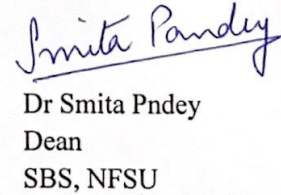 Smita Pandey
Dr Smita Pndey
Dean
SBS, NFSU